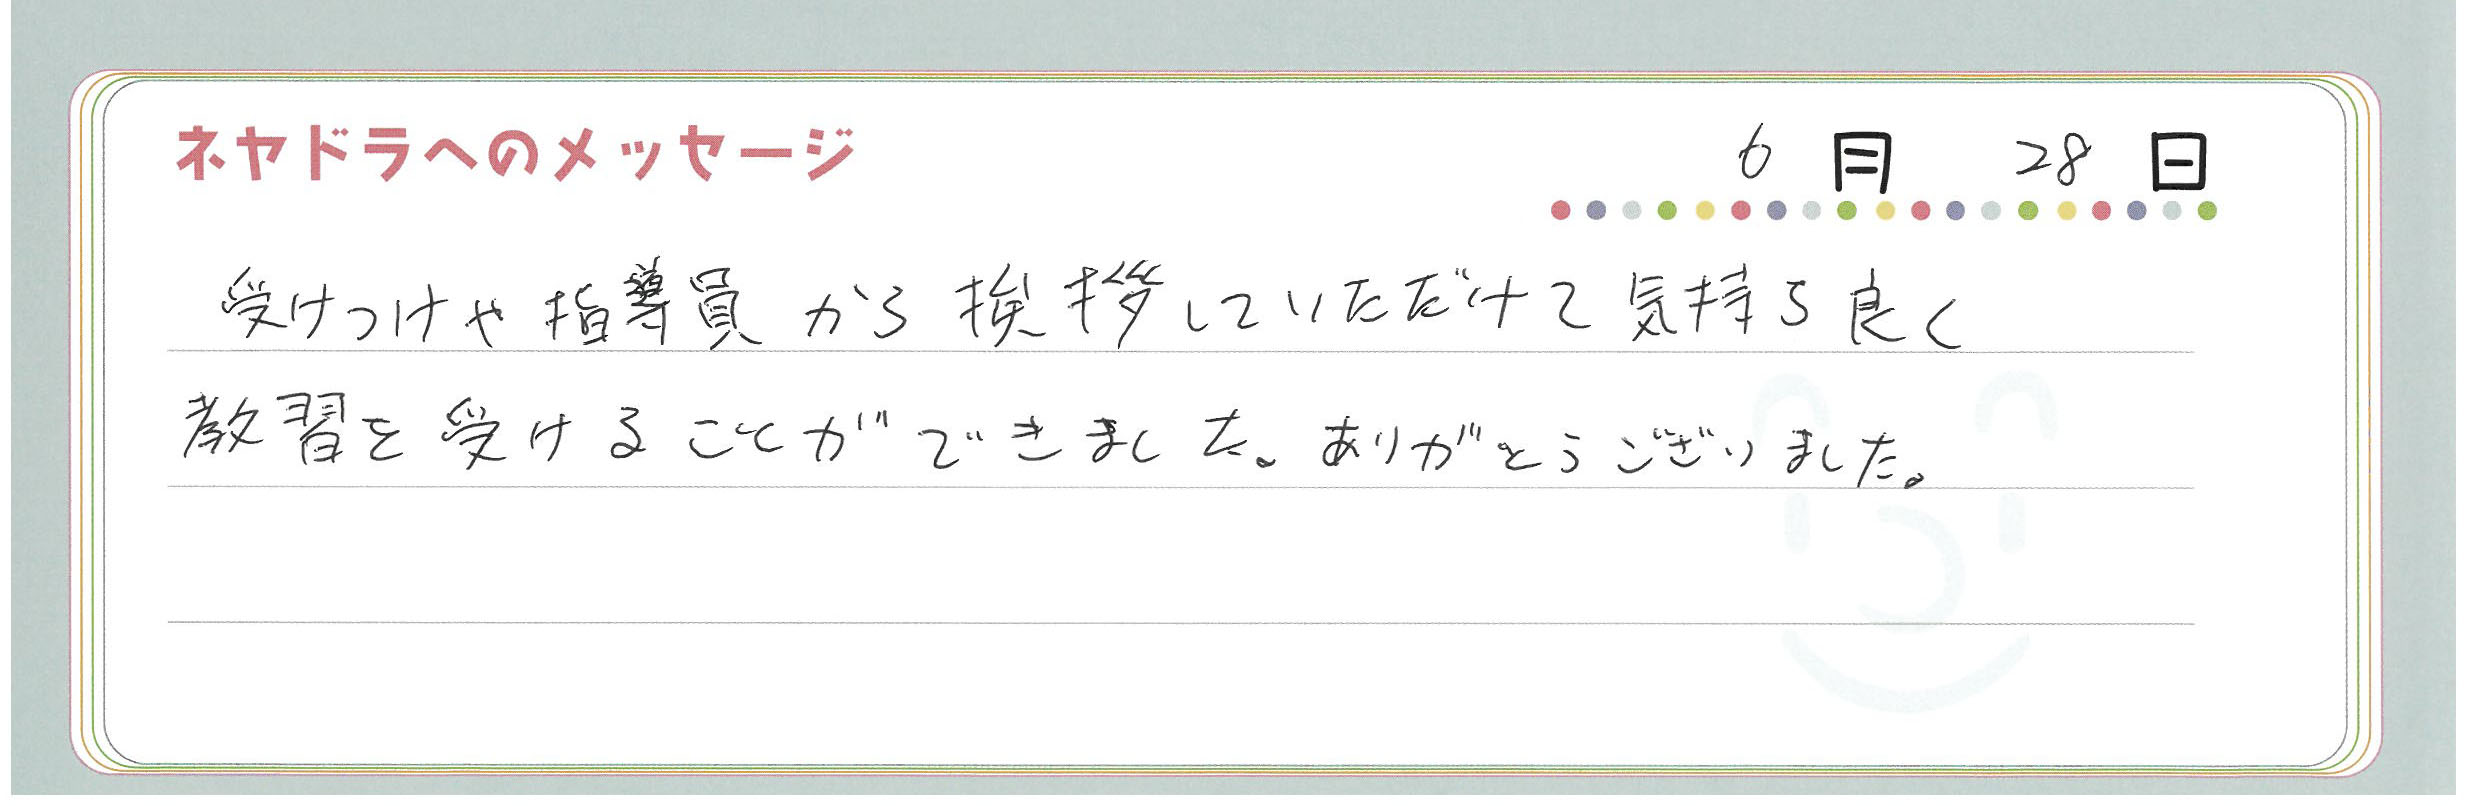 ネヤドラへのメッセージ
6月 28日
受けつけや指導員から挨拶していただけて気持ち良く
教習を受けることができました。ありがとうございました。